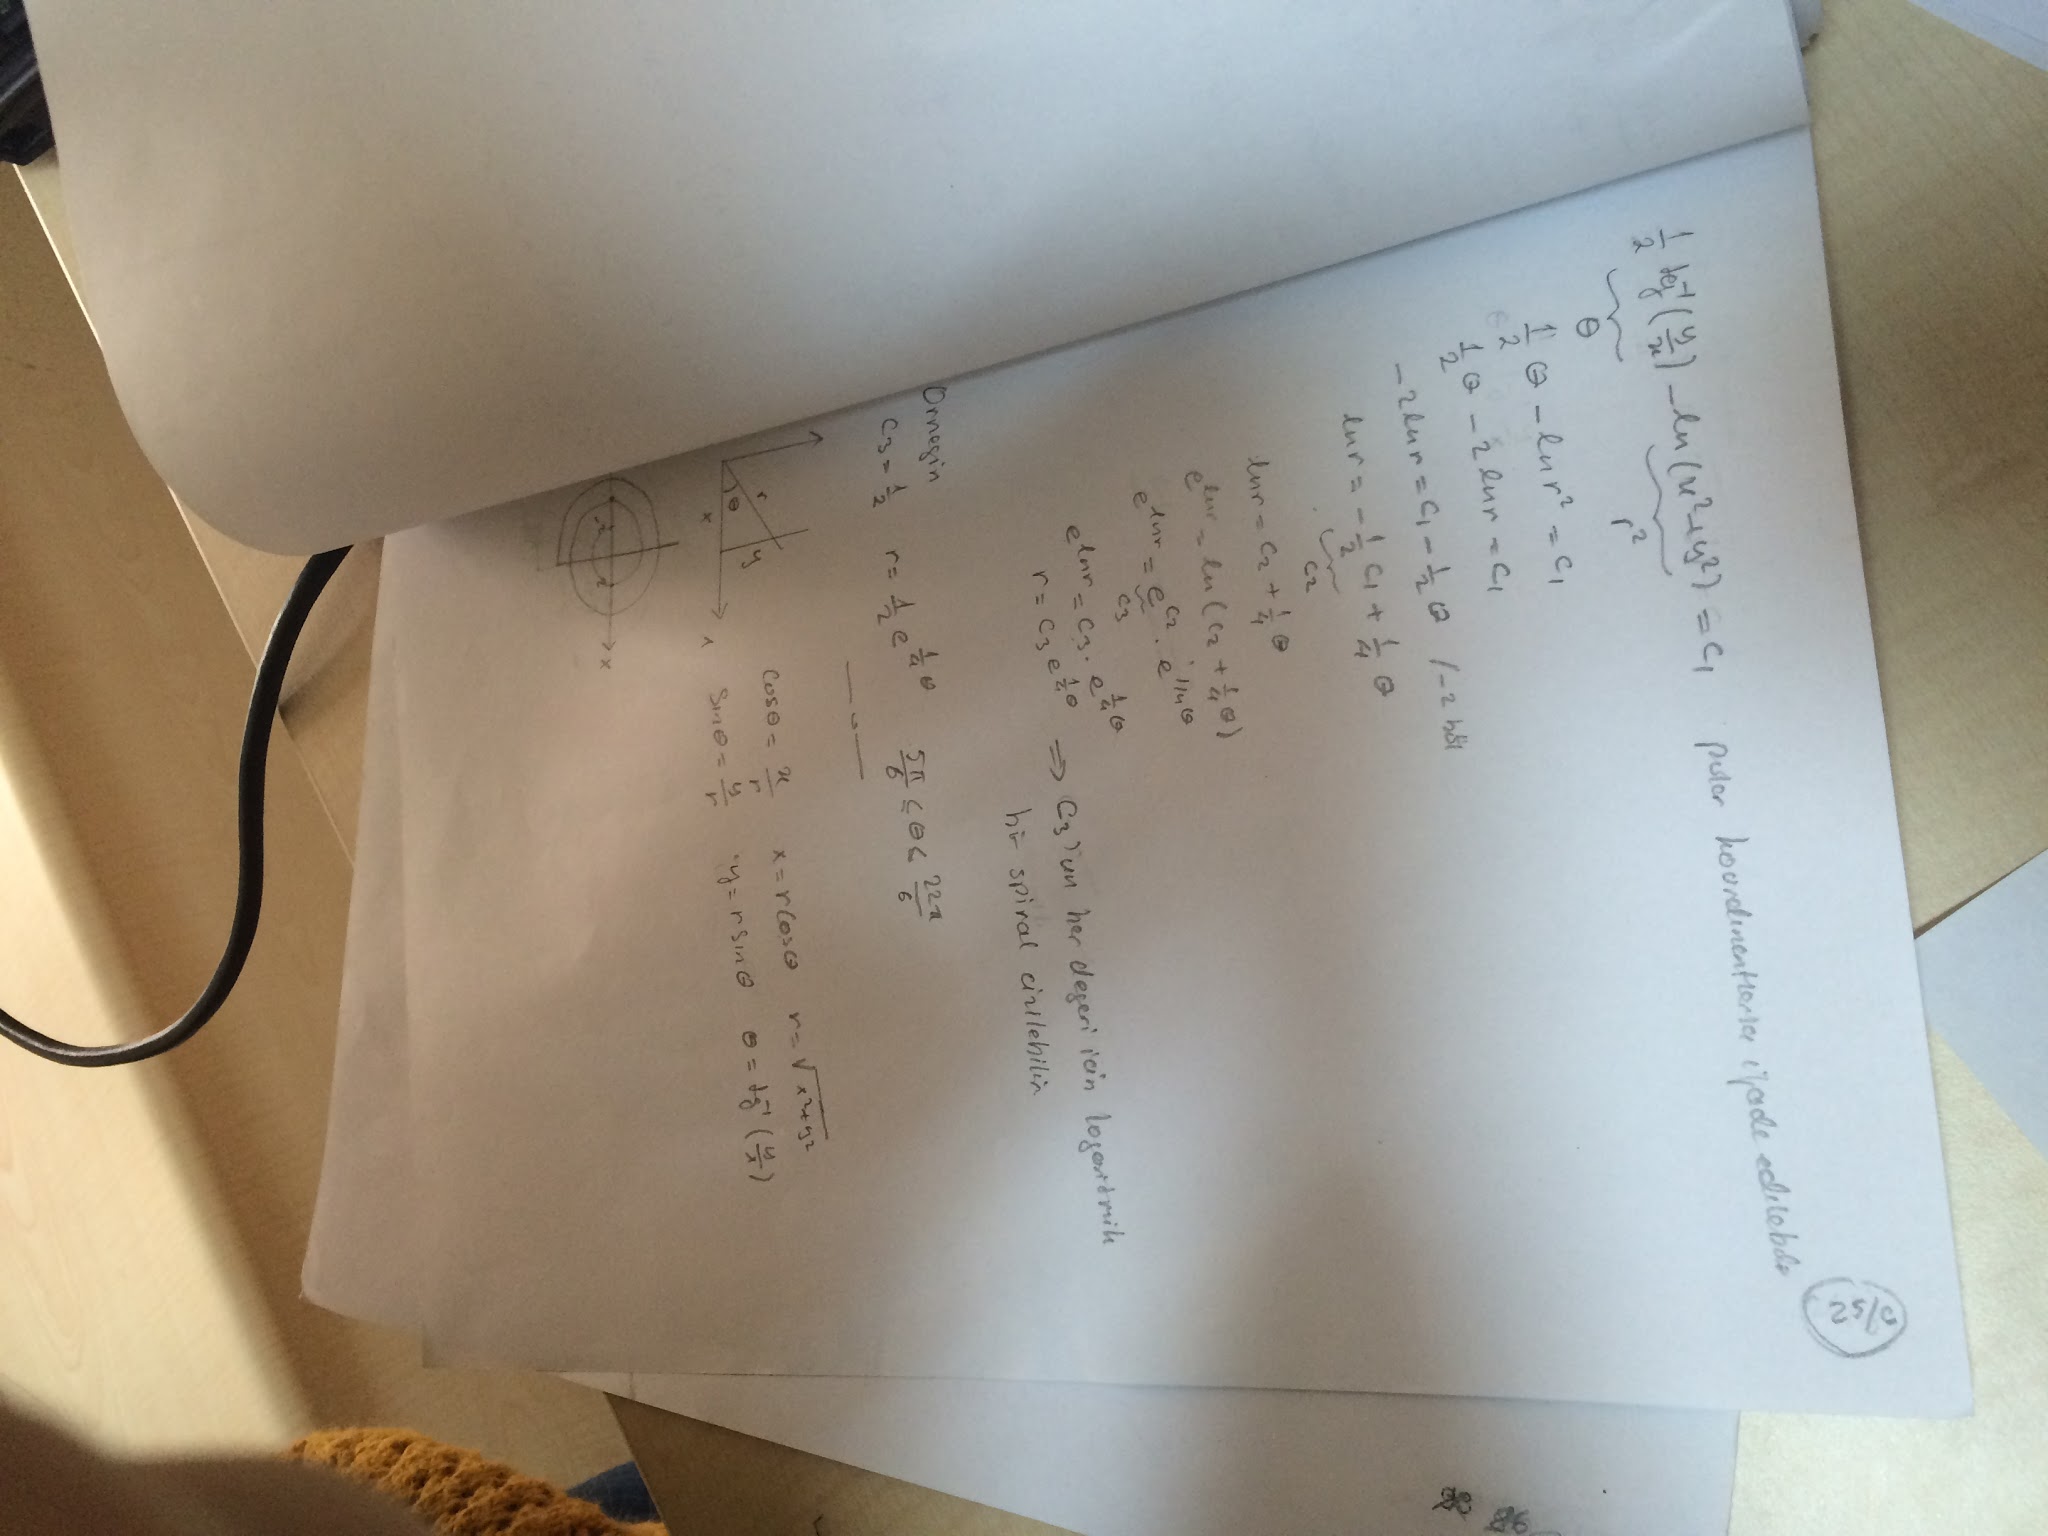 25/c
1/2 tg⁻¹(y/x) - ln(x²+y²) = c₁ polar koordinatlarla ifade edilebilir
θ r²
1/2 θ - ln r² = c₁
1/2 θ - 2 ln r = c₁
-2 ln r = c₁ - 1/2 θ /-2 böl
ln r = -1/2 c₁ + 1/4 θ
c₂
ln r = c₂ + 1/4 θ
e^lnr = ln(c₂ + 1/4 θ)
e^lnr = e^c₂ . e^1/4θ
c₃
e^lnr = c₃ . e^1/4θ
r = c₃ e^1/4θ ⇒ C₃'ün her değeri için logaritmik
bir spiral çizilebilir
Örneğin
c₃ = 1/2 r = 1/2 e^1/4θ 5π/6 ≤ θ ≤ 22π/6
cosθ = x/r x = r cosθ r = √x²+y²
sinθ = y/r y = r sinθ θ = tg⁻¹(y/x)
r y
θ
x
-2 2 x